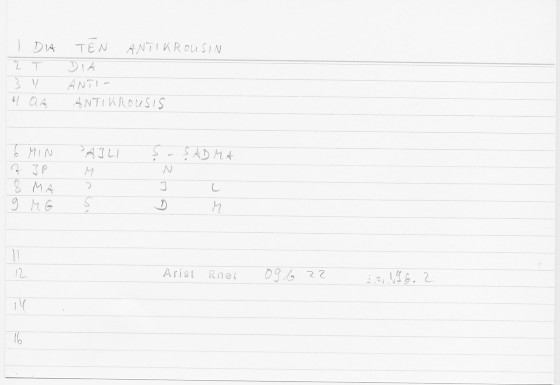 1 DIA TĒN ANTIKROUSIN
2 T DIA
3 Y ANTI-
4 QA ANTIKROUSIS
6 MIN ʾAJLI Ṣ - ṢADMA
7 JP M N
8 MA ʾ J L
9 MG Ṣ D M
11
12 Arist Rhet 09.6 22
14
16